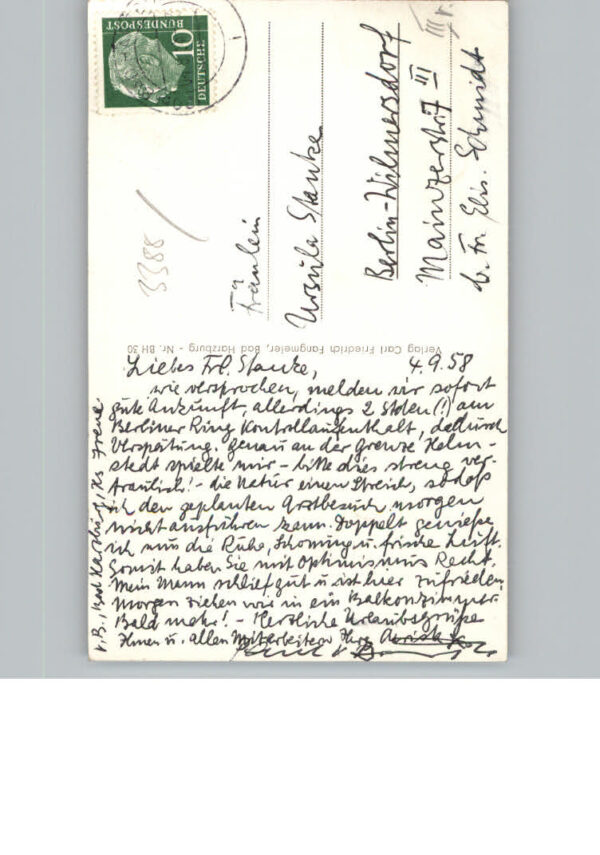 10
DEUTSCHE
BUNDESPOST
3388
Fräulein
Ursula Stanke
Berlin-Wilmersdorf
Mainzerstr. 7 III
b. Fr. Elis. Schmidt
Verlag Carl Friedrich Fangmeier, Bad Harzburg - Nr. BH 30
Liebes Frl. Stanke, 4.9.58
wie versprochen, melden wir sofort
gute Ankunft, allerdings 2 Stden(!) am
Berliner Ring Kontrollaufenthalt, dadurch
Verspätung. Genau an der Grenze Helm-
stedt spielte mir - bitte dies streng ver-
traulich! - die Natur einen Streich, sodass
ich den geplanten Arztbesuch morgen
nicht ausführen kann. Doppelt genieße
ich nun die Ruhe, Schonung u. frische Luft.
Somit haben Sie mit Optimismus Recht.
Mein Mann schlief gut u. ist hier zufrieden.
Morgen ziehen wir in ein Balkonzimmer.
Bald mehr! - Herzliche Urlaubsgrüße
Ihnen u. allen Mitarbeitern Ihre
z.B., Bad Harzburg, Hs Irene